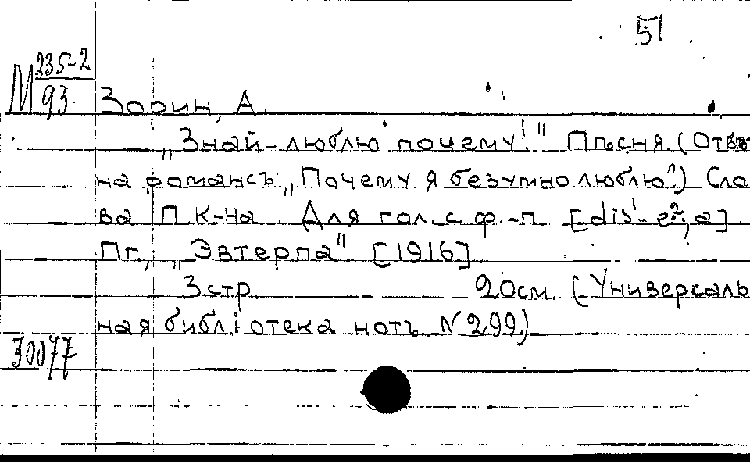 51
М 235-2
93
Зорин, А.
„Знай-люблю почему!" Пѣсня. (Отвѣт
на романсъ „Почему я безумно люблю?") Сло
ва П. К-на. Для гол. с ф.-п. [dis¹-e²,a]
Пг., „Эвтерпа" [1916]
3 стр. 20 см. (Универсаль
ная библіотека нотъ N 299.)
30077